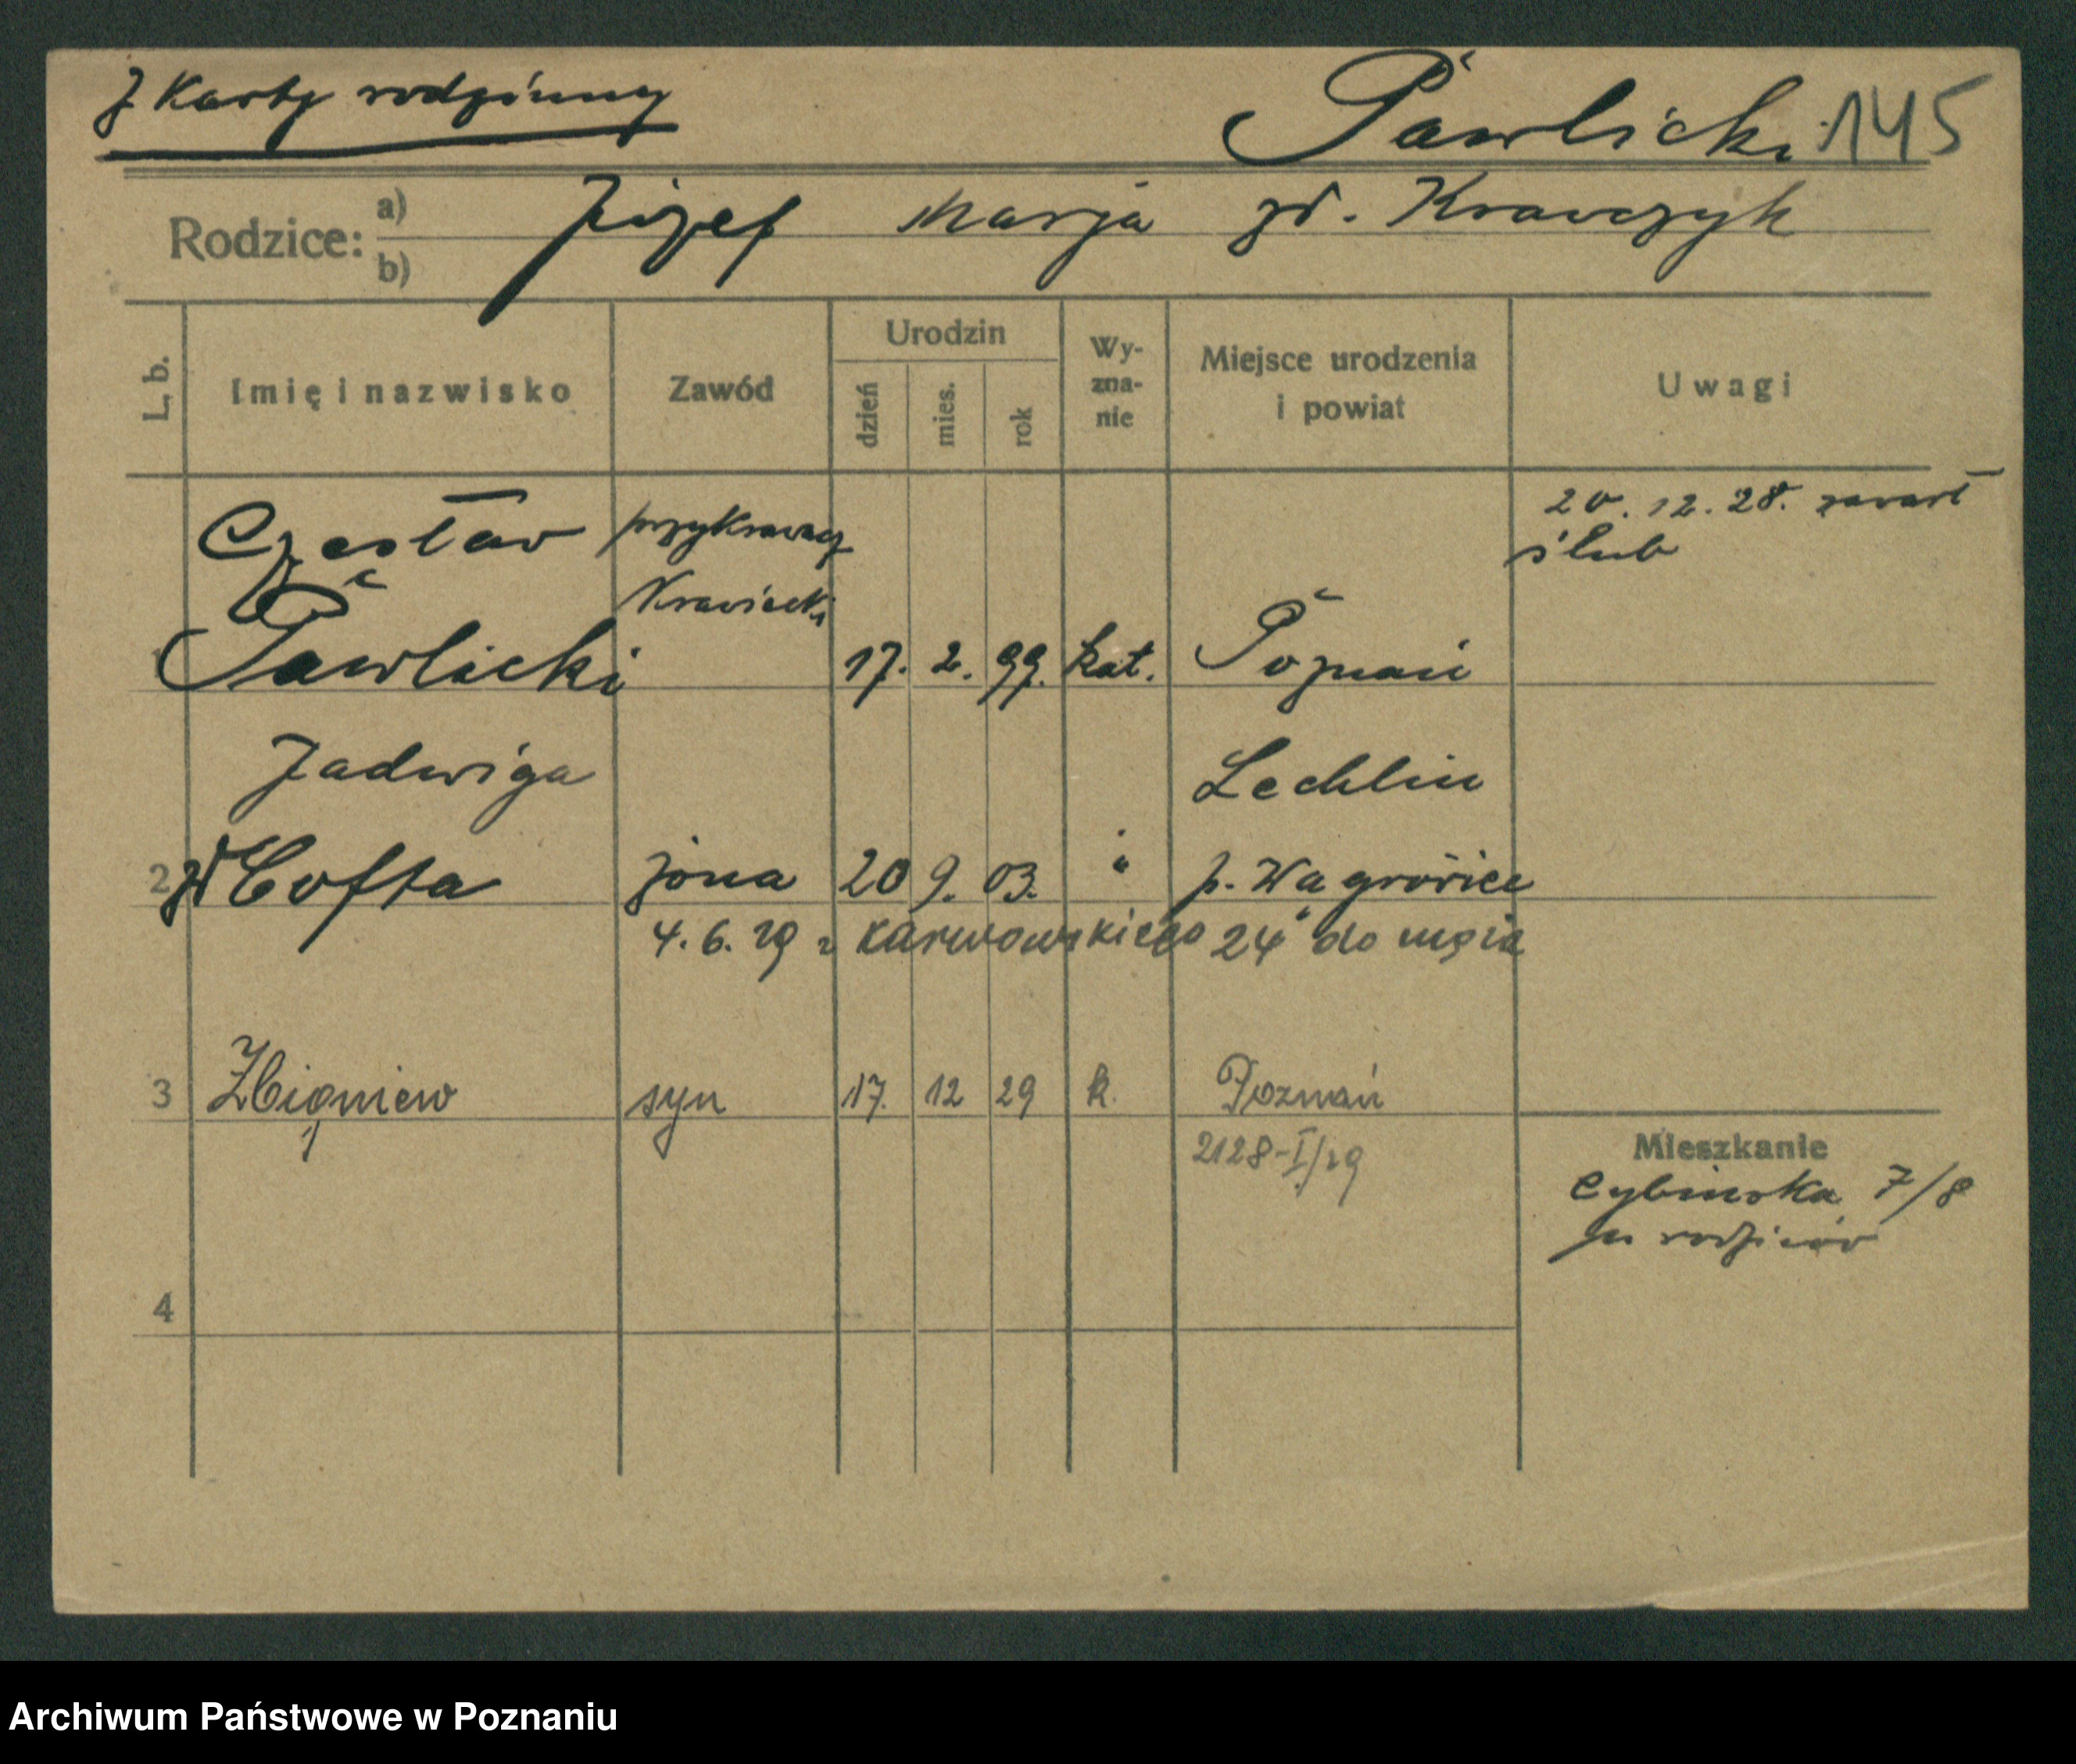 Z Karty rodzinnej
Pawlicki 145
Rodzice: a) b) Józef Marja zd. Krawczyk
L. b. Imię i nazwisko Zawód Urodzin dzień mies. rok Wy-zna-nie Miejsce urodzenia i powiat Uwagi
Czesław przykrawacz 20. 12. 28. zawarł
ślub
Krawiecki
1 Pawlicki 17. 2. 99. kat. Poznań
Jadwiga Lechlin
2 zd Cofta żona 20 9. 03. " p. Wągrowiec
4. 6. 29 z Karwowskiego 24 do męża
3 Zbigniew syn 17. 12 29 k. Poznań
2128-I/29
Mieszkanie
Cybińska 7/8
u rodziców
4
Archiwum Państwowe w Poznaniu